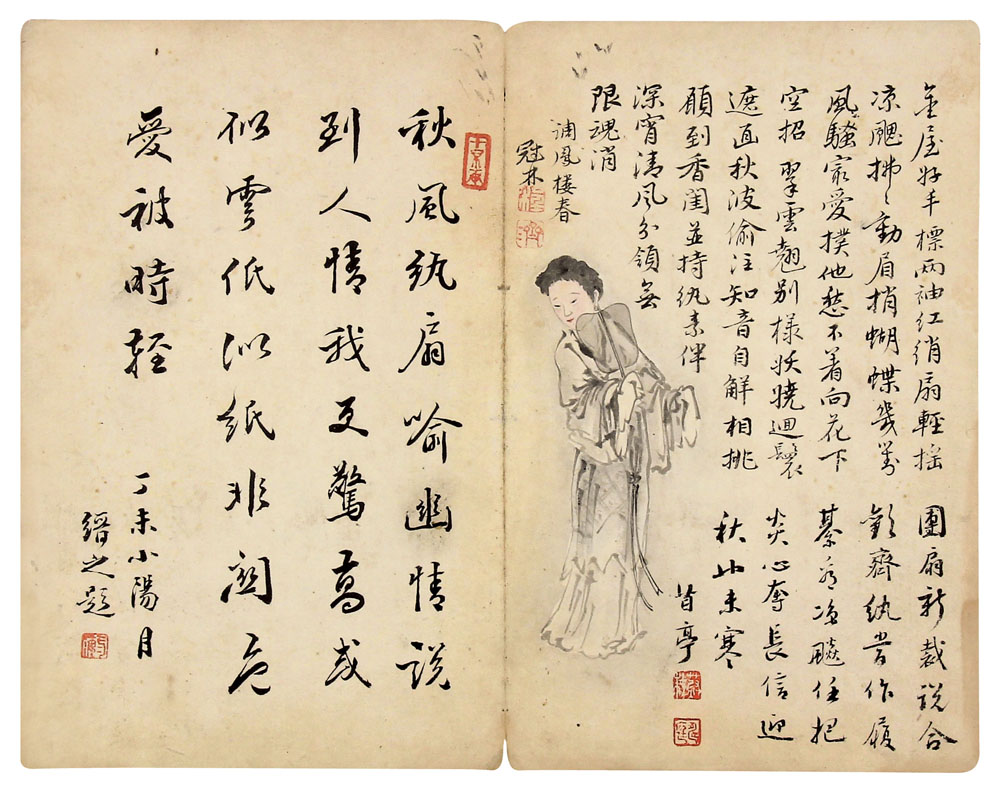 金屋好手標兩袖紅綃扇輕摇
凉颸拂〻動眉捎蝴蝶幾對
風騷最愛撲他愁不着向花下
空招 翠雲翹别樣妖嬈迴鬟
遮面秋波偷注知音自解相挑
願到香閨並持紈素伴
深宵清風分領無
限魂消
調鳳樓春
冠林
團扇新裁説合
歡齊紈嘗作履
綦看凉飈任把
炎心奪長信迎
秋此未寒
苜亭
秋風紈扇喻幽情説
到人情我更驚
似雲低似紙非關色
愛被時輕
丁未小陽月
縉之題